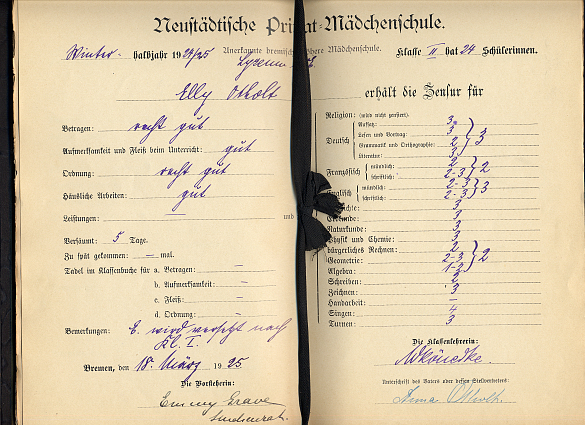 Neustädtische Privat-Mädchenschule.
Winter-halbjahr 1924/25 Anerkannte bremische höhere Mädchenschule. Klasse II hat 24 Schülerinnen.
Lyzeum
Elly Otholt erhält die Zensur für
Betragen: recht gut
Aufmerksamkeit und Fleiß beim Unterricht: gut
Ordnung: recht gut
Häusliche Arbeiten: gut
Leistungen: — und
Versäumt 5 Tage.
Zu spät gekommen: — mal.
Tadel im Klassenbuche für a. Betragen: —
b. Aufmerksamkeit: —
c. Fleiß: —
d. Ordnung: —
Bemerkungen: E. wird versetzt nach
Kl. I.
Bremen, den 18. März 1925.
Die Vorsteherin:
Emmy Grave
Studienrat.
Religion: (wird nicht zensiert).
Deutsch
Aufsatz: 3
Lesen und Vortrag: 3
Grammatik und Orthographie: 2
Literatur: 3
3
Französisch
mündlich: 2
schriftlich: 2-3
2
Englisch
mündlich: 2-3
schriftlich: 2-3
3
Geschichte: 3
Erdkunde: 3
Naturkunde: 3
Physik und Chemie: 3
bürgerliches Rechnen: 2
Geometrie: 2-3
Algebra: 1-2
2
Schreiben: 2
Zeichnen: 3
Handarbeit: —
Singen: 4
Turnen: 3
Die Klassenlehrerin:
Unterschrift des Vaters oder dessen Stellvertreters:
Anna Otholt.